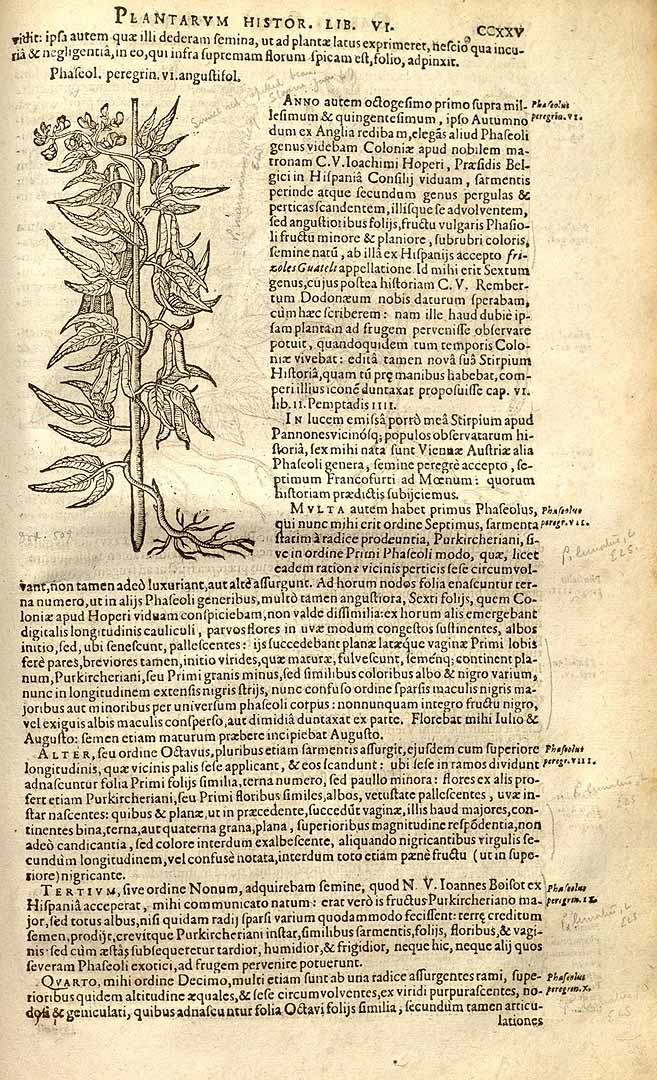 PLANTARVM HISTOR. LIB. VI.
CCXXV
vidit: ipsa autem quæ illi dederam semina, ut ad plantæ latus exprimeret, nescio qua incu-
riâ & negligentiâ, in eo, qui infra supremam florum spicam est, folio, adpinxit.
Phaseol. peregrin. VI. angustifol.
ANNO autem octogesimo primo supra mil-
lesimum & quingentesimum, ipso Autumno
dum ex Anglia redibam, elegãs aliud Phaseoli
genus videbam Coloniæ apud nobilem ma-
tronam C. V. Ioachimi Hoperi, Præsidis Bel-
gici in Hispaniâ Consilij viduam, sarmentis
perinde atque secundum genus pergulas &
perticas scandentem, illisque se advolventem,
sed angustioribus folijs, fructu vulgaris Phasio-
li fructu minore & planiore, subrubri coloris,
semine natũ, ab illâ ex Hispanijs accepto fri-
xoles Guateli appellatione. Id mihi erit Sextum
genus, cujus postea historiam C. V. Rember-
tum Dodonæum nobis daturum sperabam,
cùm hæc scriberem: nam ille haud dubiè ip-
sam plantam ad frugem pervenisse observare
potuit, quandoquidem tum temporis Colo-
niæ vivebat: editâ tamen novâ suâ Stirpium
Historiâ, quam tũ prę manibus habebat, com-
peri illius iconẽ duntaxat proposuisse cap. VI.
lib. II. Pemptadis IIII.
Phaseolus
peregrin. VI.
IN lucem emissâ porrò meâ Stirpium apud
Pannones vicinósq; populos observatarum hi-
storiâ, sex mihi nata sunt Viennæ Austriæ alia
Phaseoli genera, semine peregrè accepto, se-
ptimum Francofurti ad Mœnum: quorum
historiam prædictis subijciemus.
MVLTA autem habet primus Phaseolus,
qui nunc mihi erit ordine Septimus, sarmenta
statim à radice prodeuntia, Purkircheriani, si-
ve in ordine Primi Phaseoli modo, quæ, licet
eadem ratione vicinis perticis sese circumvol-
Phaseolus
peregr. VII.
vant, non tamen adeò luxuriant, aut altè assurgunt. Ad horum nodos folia enascuntur ter-
na numero, ut in alijs Phaseoli generibus, multò tamen angustiora, Sexti folijs, quem Co-
loniæ apud Hoperi viduam conspiciebam, non valde dissimilia: ex horum alis emergebant
digitalis longitudinis cauliculi, parvos flores in uvæ modum congestos sustinentes, albos
initio, sed, ubi senescunt, pallescentes: ijs succedebant planæ latæque vaginæ Primi lobis
ferè pares, breviores tamen, initio virides, quæ maturæ, fulvescunt, seménq; continent pla-
num, Purkircheriani, seu Primi granis minus, sed similibus coloribus albo & nigro varium,
nunc in longitudinem extensis nigris strijs, nunc confuso ordine sparsis maculis nigris ma-
joribus aut minoribus per universum phaseoli corpus: nonnunquam integro fructu nigro,
vel exiguis albis maculis consperso, aut dimidiâ duntaxat ex parte. Florebat mihi Iulio &
Augusto: semen etiam maturum præbere incipiebat Augusto.
ALTER, seu ordine Octavus, pluribus etiam sarmentis assurgit, ejusdem cum superiore
longitudinis, quæ vicinis palis sese applicant, & eos scandunt: ubi sese in ramos dividunt
adnascuntur folia Primi folijs similia, terna numero, sed paullo minora: flores ex alis pro-
fert etiam Purkircheriani, seu Primi floribus similes, albos, vetustate pallescentes, uvæ in-
star nascentes: quibus & planæ, ut in præcedente, succedũt vaginæ, illis haud majores, con-
tinentes bina, terna, aut quaterna grana, plana, superioribus magnitudine respõdentia, non
adeò candicantia, sed colore interdum exalbescente, aliquando nigricantibus virgulis se-
cundùm longitudinem, vel confusè notata, interdum toto etiam pænè fructu (ut in supe-
riore) nigricante.
Phaseolus
peregr. VIII.
TERTIVM, sive ordine Nonum, adquirebam semine, quod N. V. Ioannes Boisot ex
Hispaniâ acceperat, mihi communicato natum: erat verò is fructus Purkircheriano ma-
jor, sed totus albus, nisi quidam radij sparsi varium quodammodo fecissent: terrę creditum
semen, prodijt, crevítque Purkircheriani instar, similibus sarmentis, folijs, floribus, & vagi-
nis: sed cùm æstãs subsequeretur tardior, humidior, & frigidior, neque hic, neque alij quos
severam Phaseoli exotici, ad frugem pervenire potuerunt.
Phaseolus
peregrin. IX.
QVARTO, mihi ordine Decimo, multi etiam sunt ab una radice assurgentes rami, supe-
rioribus quidem altitudine æquales, & sese circumvolventes, ex viridi purpurascentes, no-
dosi & geniculati, quibus adnascuntur folia Octavi folijs similia, secundùm tamen articu-
lationes
Phaseolus
peregrin. X.